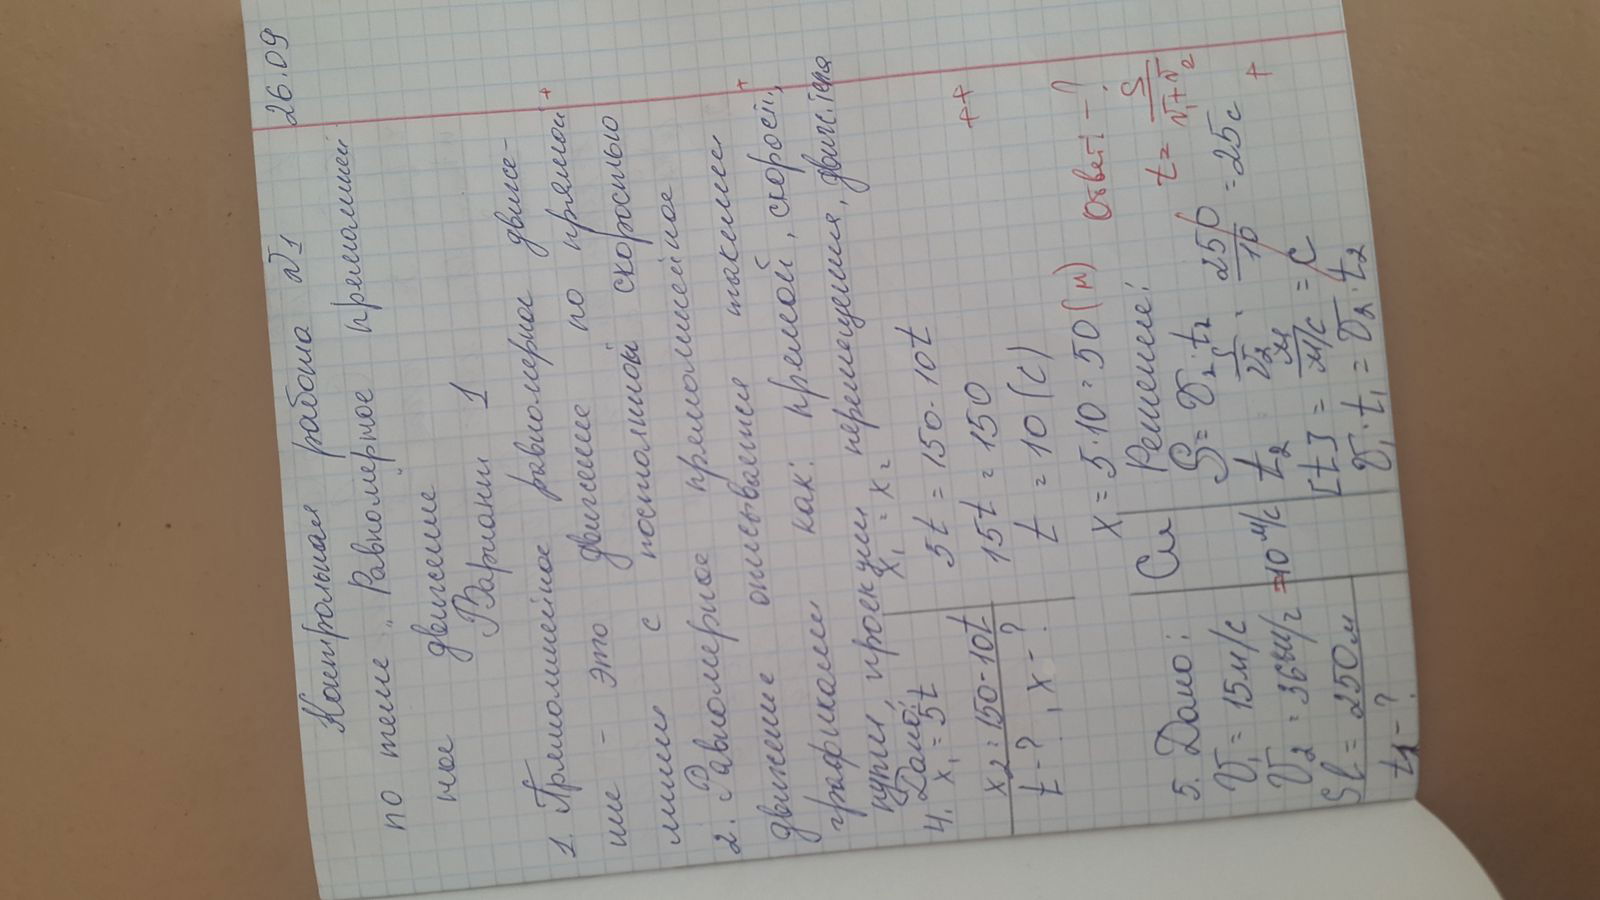 26.09
Контрольная работа №1
по теме „Равномерное прямолиней
ное движение
Вариант 1
1. Прямолинейное равномерное движе-
ние - это движение по прямой +
линии с постоянной скоростью
2. Равномерное прямолинейное
движение описывается такими +
графиками как: прямой, скорости,
пути, проекции перемещения, движ. тела
4. Дано:
x₁ = 5t
x₂ = 150-10t
t-?, x-?
x₁ = x₂
5t = 150-10t
15t = 150 ++
t = 10 (с)
x = 5·10 = 50 (м) Ответ: -?
5. Дано:
υ₁ = 15м/с
υ₂ = 36км/ч = 10 м/с
Sℓ = 250м
t-?
Си
Решение:
S = υ₂·t₂
t₂ = S/υ₂ = 250/10 = 25с
[t] = м/м/с = с
υ₁·t₁ = υ₂·t₂
t = S/υ₁+υ₂
+